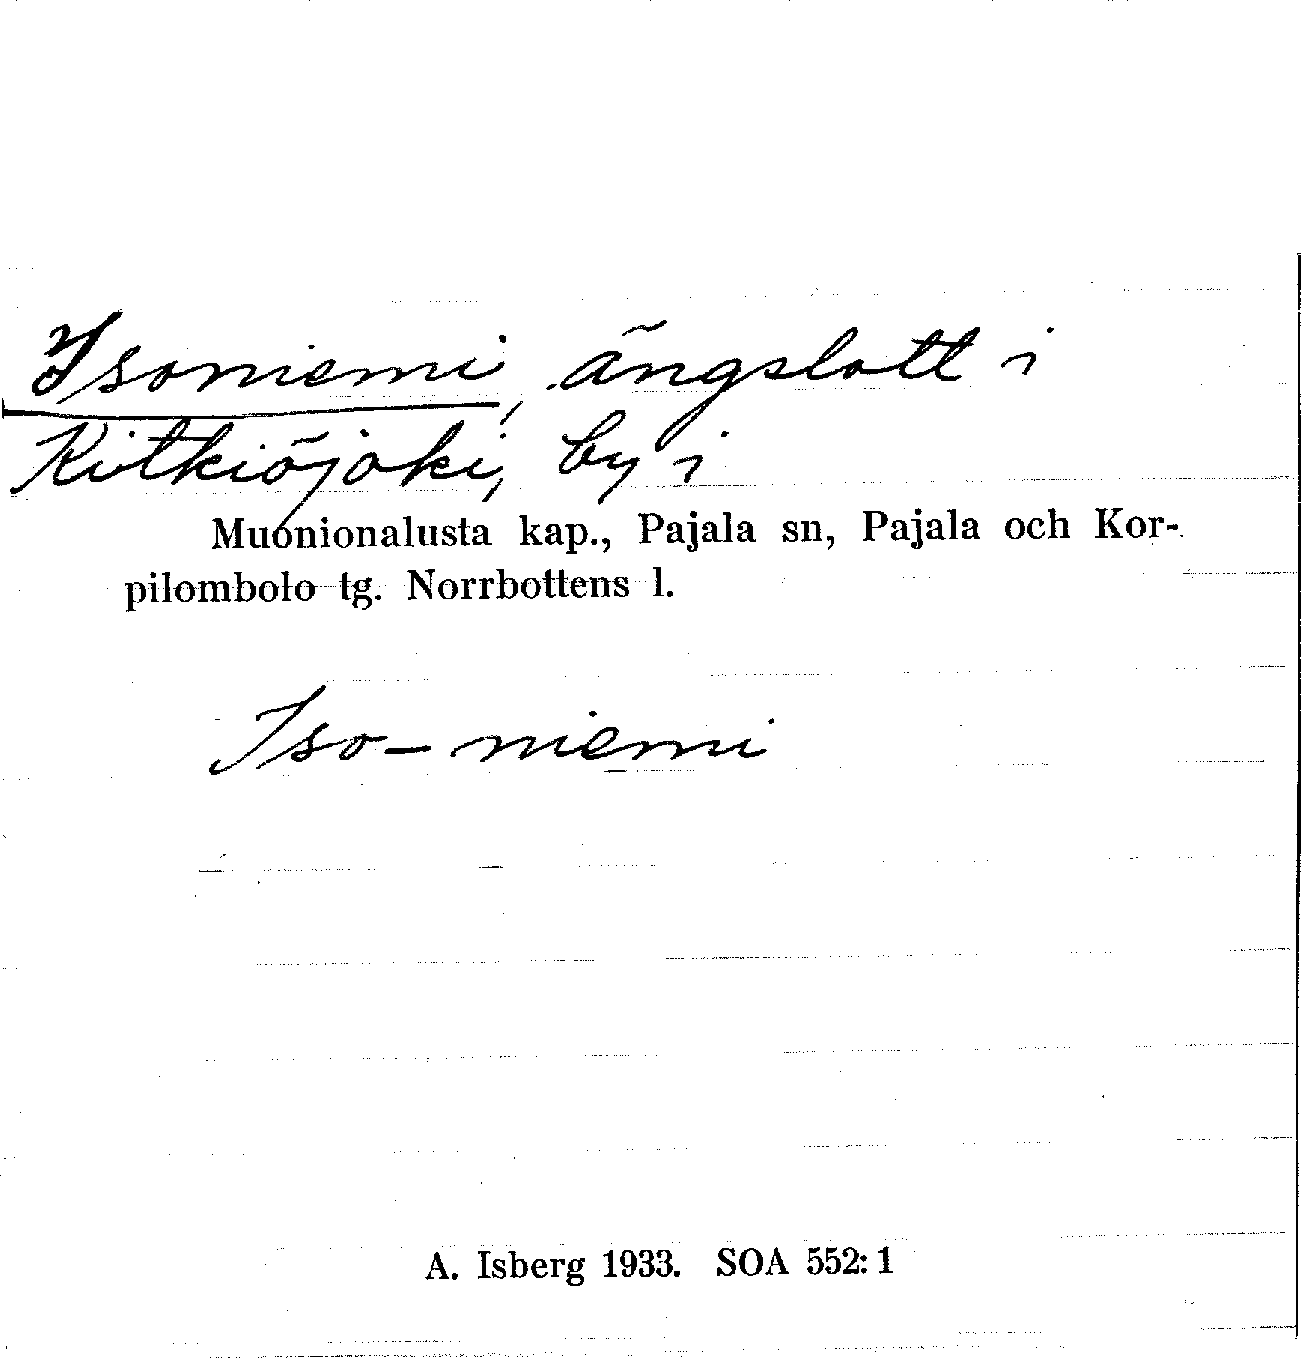 Isoniemi, ängslott i
Kitkiöjoki, by i
Muonionalusta kap., Pajala sn, Pajala och Kor-
pilombolo tg. Norrbottens l.
Iso-niemi
A. Isberg 1933. SOA 552:1